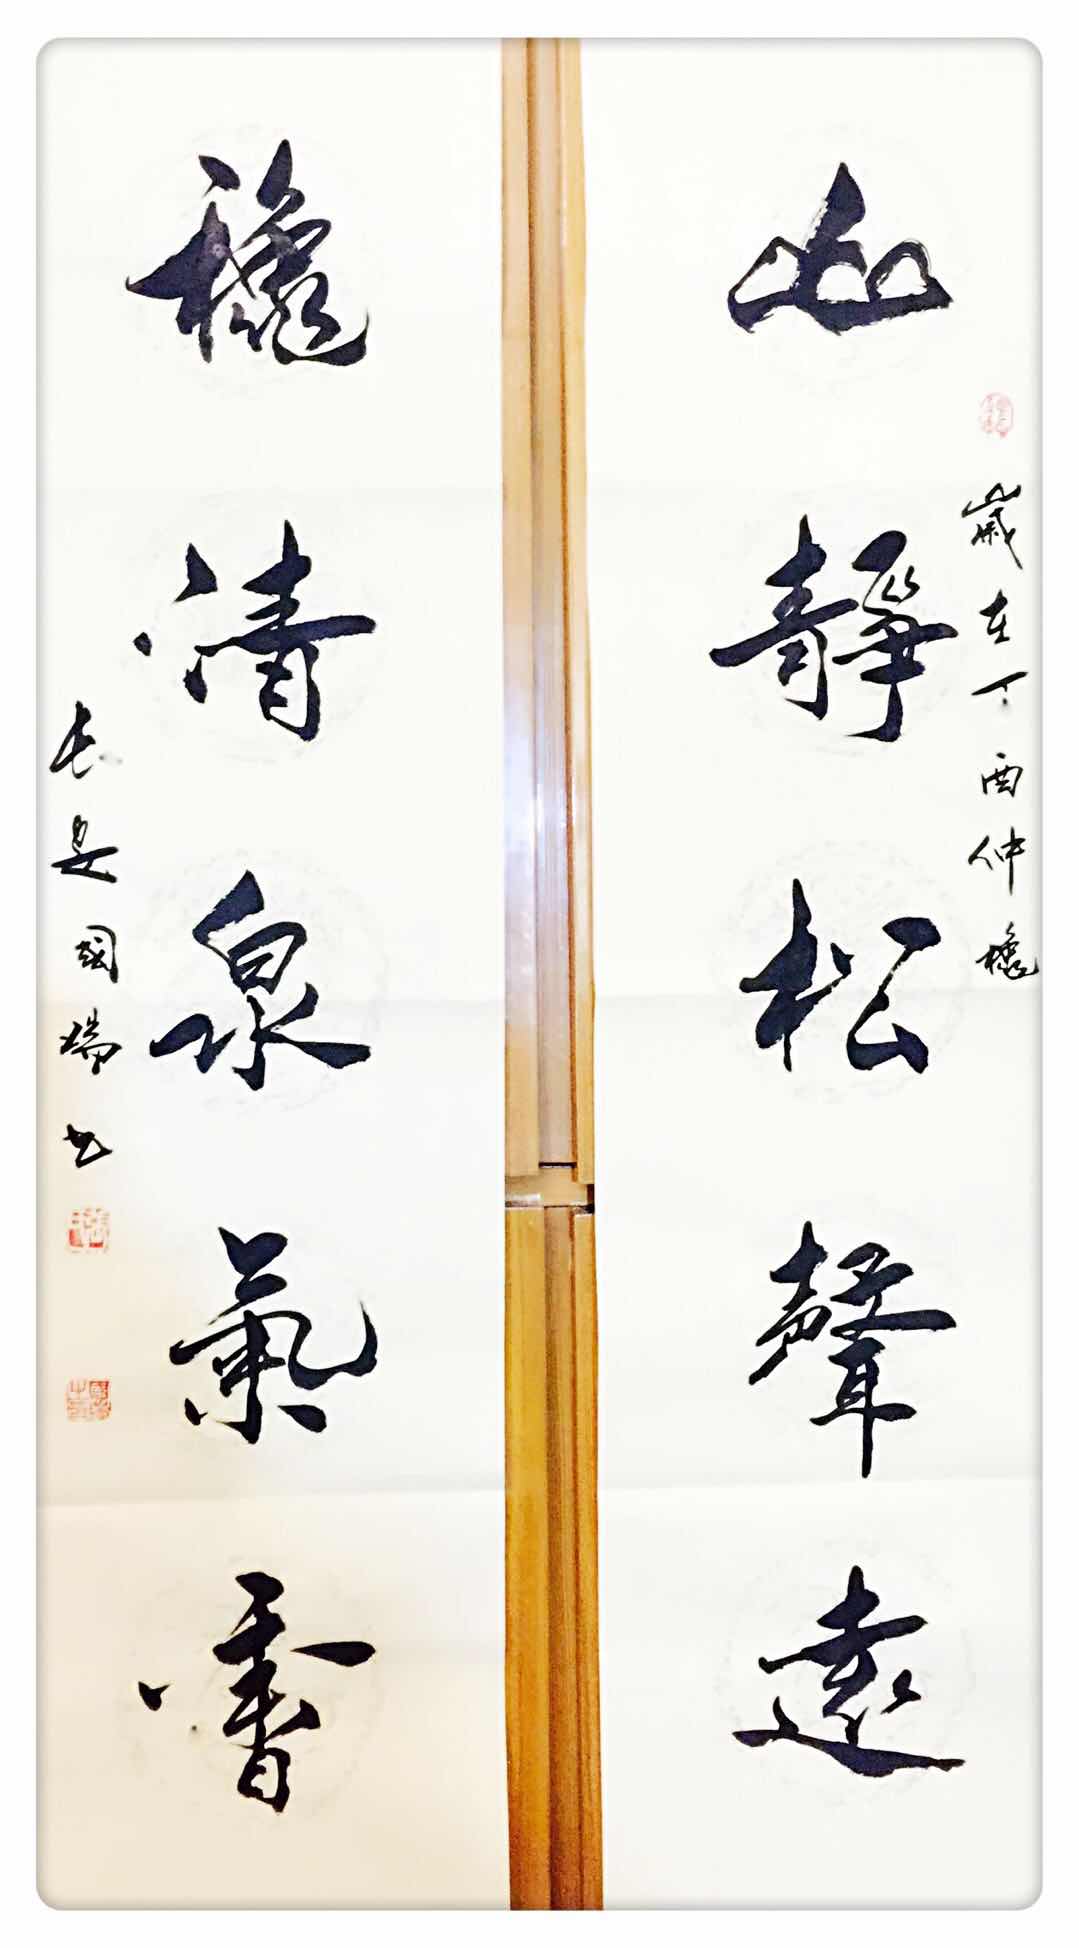 山靜松聲遠
歲在丁酉仲穐
穐清泉氣香
長安國瑞书